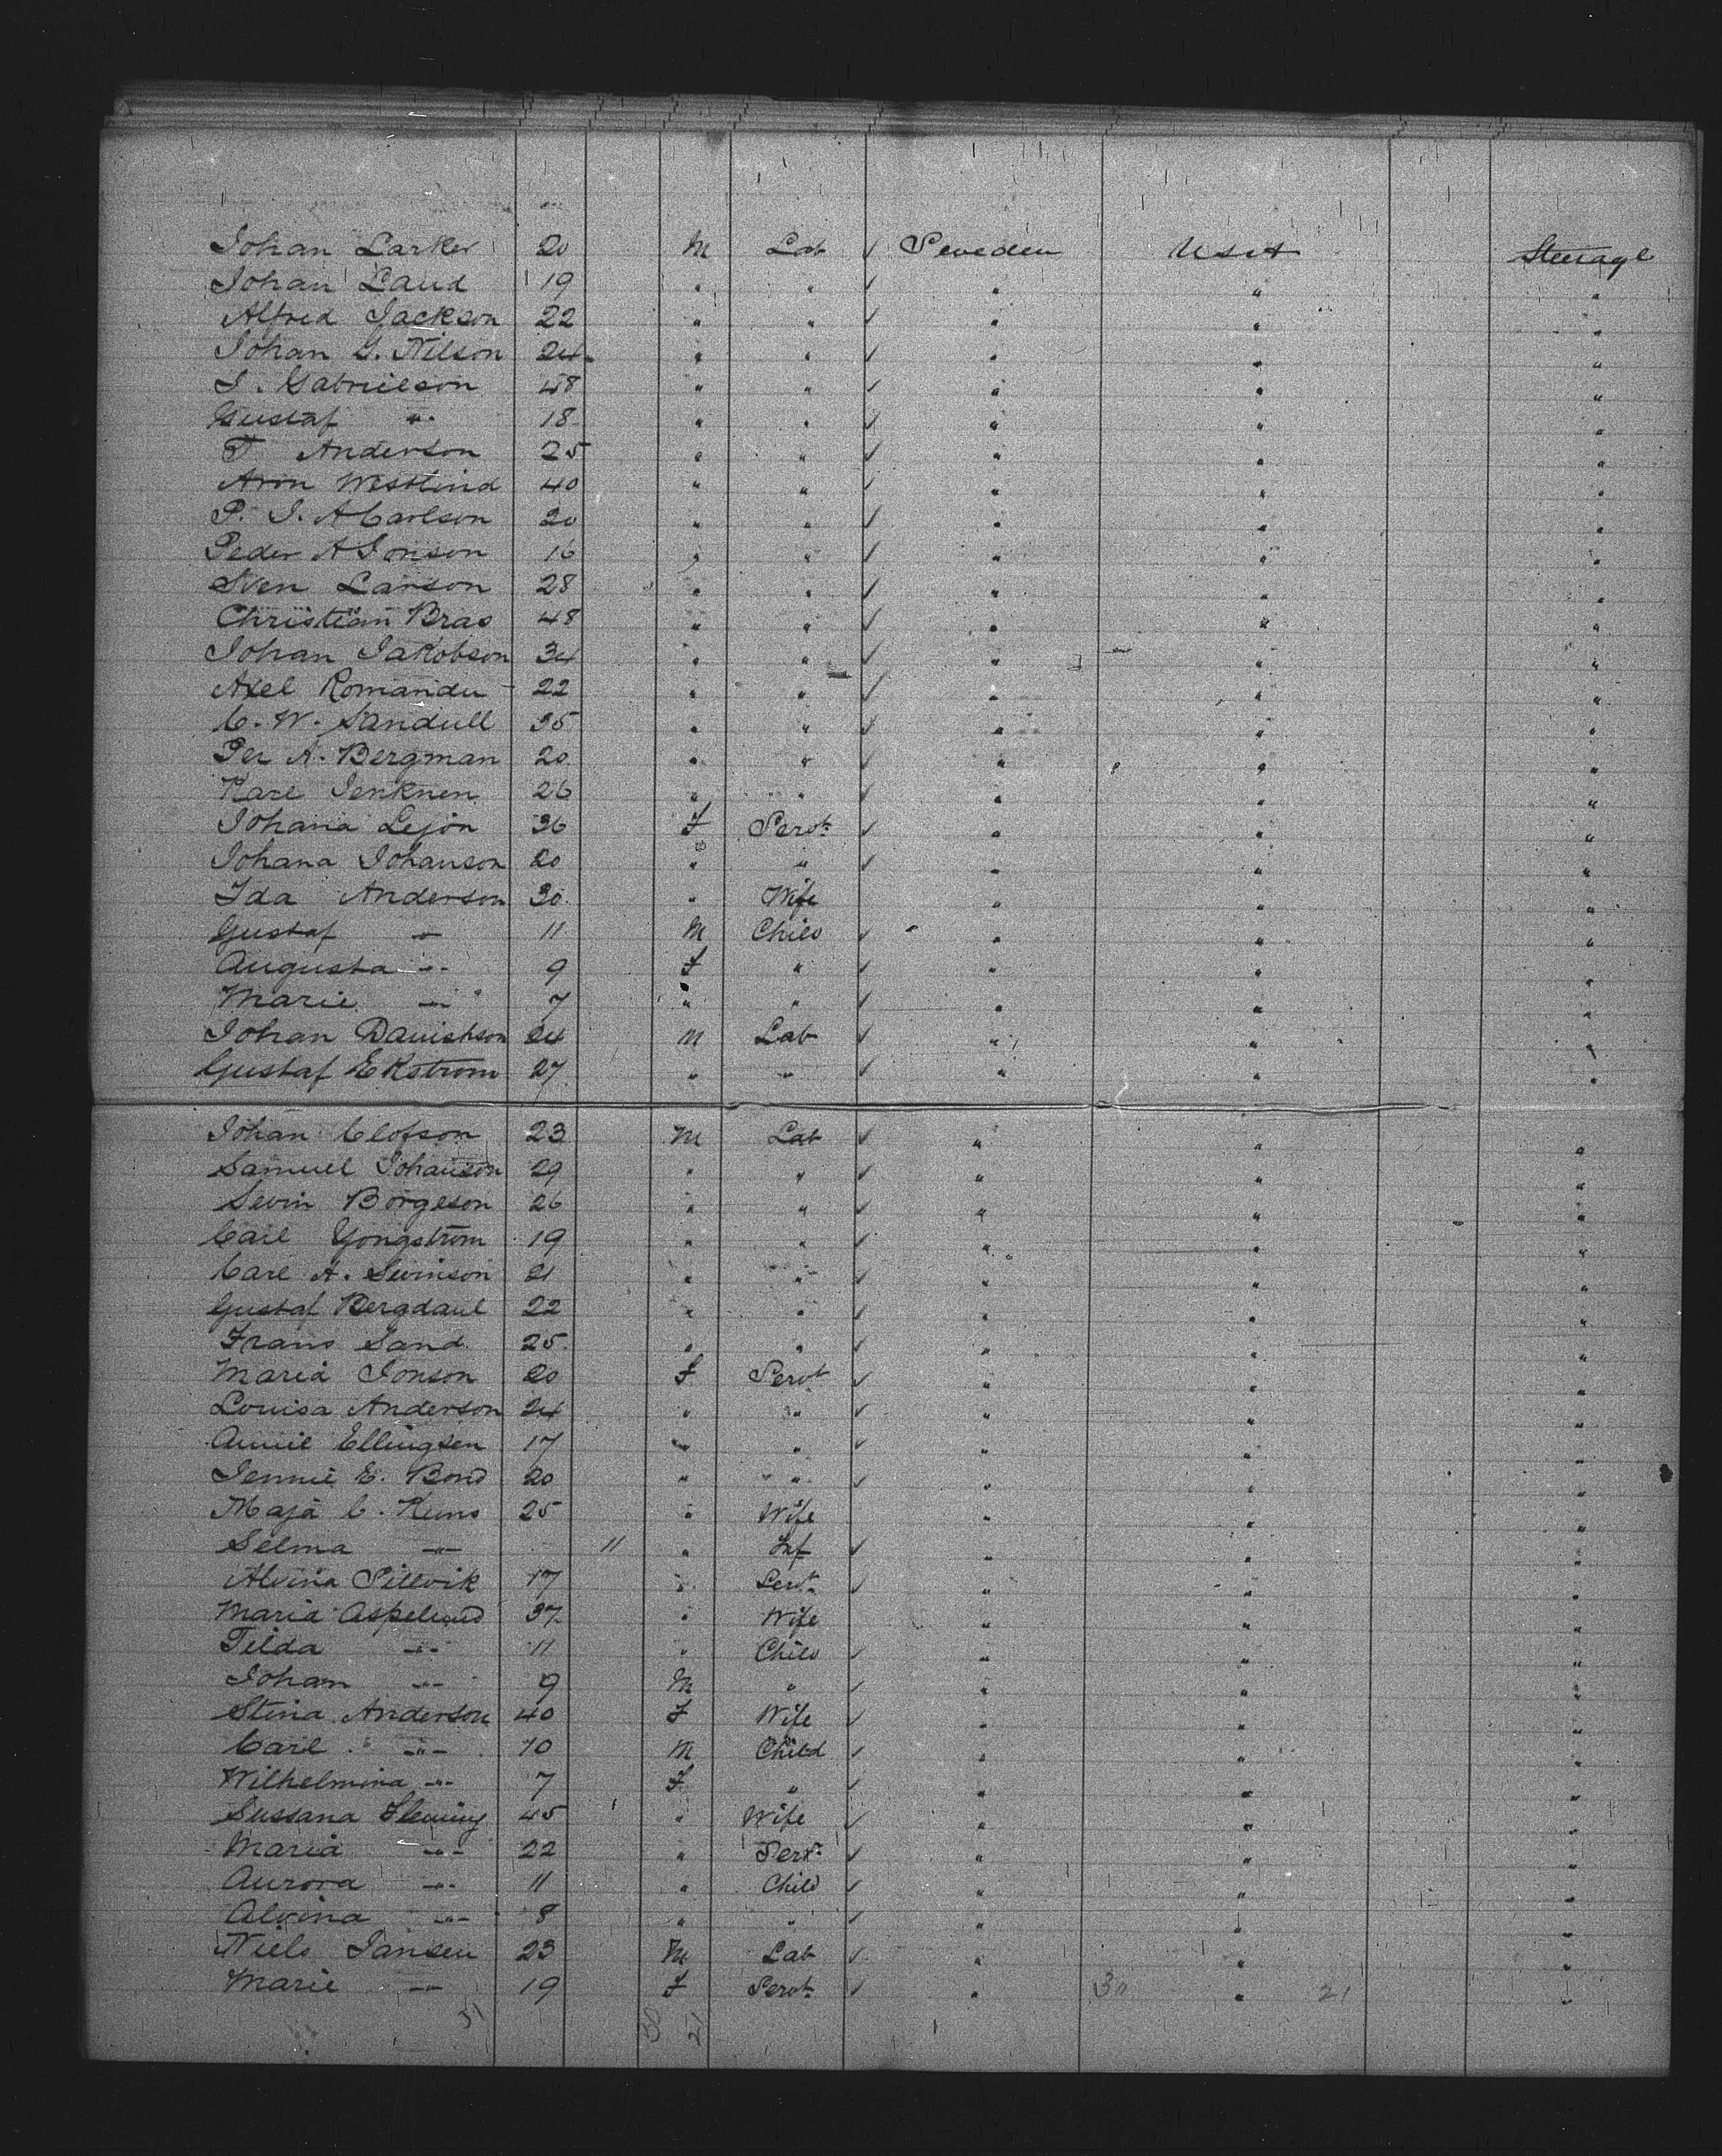 Johan Larker 20 M Lab ✓ Sweden USA Steerage
Johan Laud 19 " " ✓ " " "
Alfred Jackson 22 " " ✓ " " "
Johan G. Nilson 24 " " ✓ " " "
S. Gabrielson 48 " " ✓ " " "
Gustaf " 18 " " ✓ " " "
F Anderson 25 " " ✓ " " "
Aron Westlind 40 " " ✓ " " "
P. J. A Carlson 20 " " ✓ " " "
Peder A Jonson 16 " " ✓ " " "
Sven Larson 28 " " ✓ " " "
Christian Bras 48 " " ✓ " " "
Johan Jakobson 34 " " ✓ " " "
Axel Romander 22 " " ✓ " " "
C. W. Sandull 35 " " ✓ " " "
Per A. Bergman 20 " " ✓ " " "
Karl Jenknen 26 " " ✓ " " "
Johana Lejon 36 F Servt ✓ " " "
Johana Johanson 20 " " ✓ " " "
Ida Anderson 30 " Wife " " "
Gustaf " 11 M Child ✓ " " "
Augusta " 9 F " ✓ " " "
Marie " 7 " " ✓ " " "
Johan Davidson 24 M Lab ✓ " " "
Gustaf Ekstrom 27 " " ✓ " " "
Johan Clofson 23 M Lab ✓ " " "
Samuel Johanson 29 " " ✓ " " "
Sevin Borgeson 26 " " ✓ " " "
Carl Yongstrom 19 " " ✓ " " "
Carl A. Swinson 21 " " ✓ " " "
Gustaf Bergdaul 22 " " ✓ " " "
Frans Sand 25 " " ✓ " " "
Maria Jonson 20 F Servt ✓ " " "
Louisa Anderson 24 " " ✓ " " "
Annie Ellingsen 17 " " ✓ " " "
Jennie E. Bond 20 " " ✓ " " "
Maja C. 25 " Wife " " "
Selma " 11 " Inf ✓ " " "
Alvina Sillvik 17 " Servt ✓ " " "
Maria Aspelund 37 " Wife " " "
Tilda " 11 " Child ✓ " " "
Johan " 9 M " ✓ " " "
Stina Anderson 40 F Wife ✓ " " "
Carl " 10 M Child ✓ " " "
Wilhelmina " 7 F " ✓ " " "
Sussana Fleming 45 " Wife ✓ " " "
Maria " 22 " Servt ✓ " " "
Aurora " 11 " Child ✓ " " "
Alvina " 8 " " ✓ " " "
Niels Jansen 23 M Lab ✓ " " "
Marie " 19 F Servt ✓ " 30 " 21 "
51 30 21